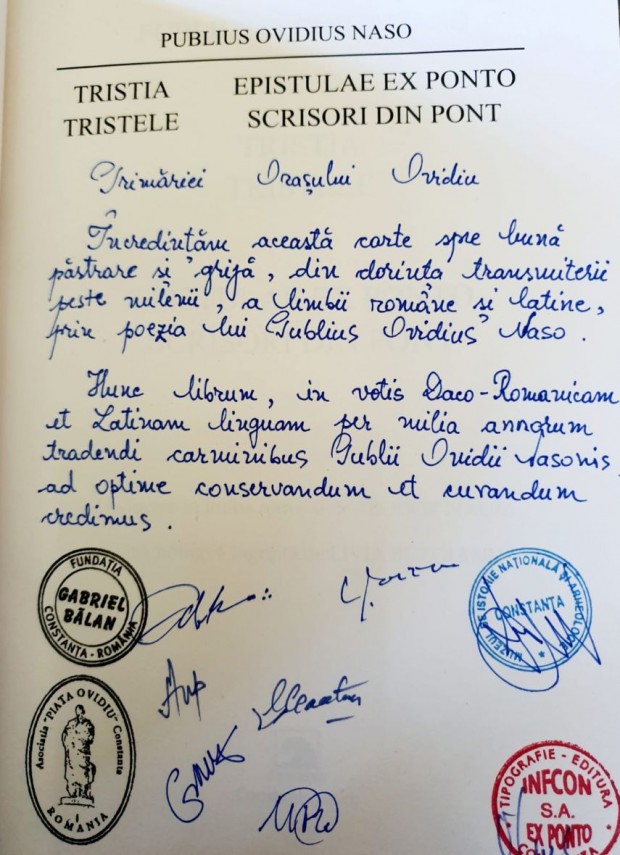 PUBLIUS OVIDIUS NASO
TRISTIA
TRISTELE
EPISTULAE EX PONTO
SCRISORI DIN PONT
Primăriei Orașului Ovidiu
Încredințăm această carte spre bună
păstrare și grijă, din dorința transmiterii
peste milenii, a limbii române și latine,
prin poezia lui Publius Ovidius Naso.
Hunc librum, in votis Daco-Romanicam
et Latinam linguam per milia annorum
tradendi carminibus Publii Ovidii Nasonis
ad optime conservandum et curandum
credimus.
FUNDAȚIA
GABRIEL
BĂLAN
CONSTANTA - ROMÂNIA
MUZEUL DE ISTORIE NAȚIONALĂ ȘI ARHEOLOGIE
CONSTANȚA
Asociatia "PIATA OVIDIU" Constanta
ROMANIA
TIPOGRAFIE - EDITURA
INFCON
S.A.
EX PONTO